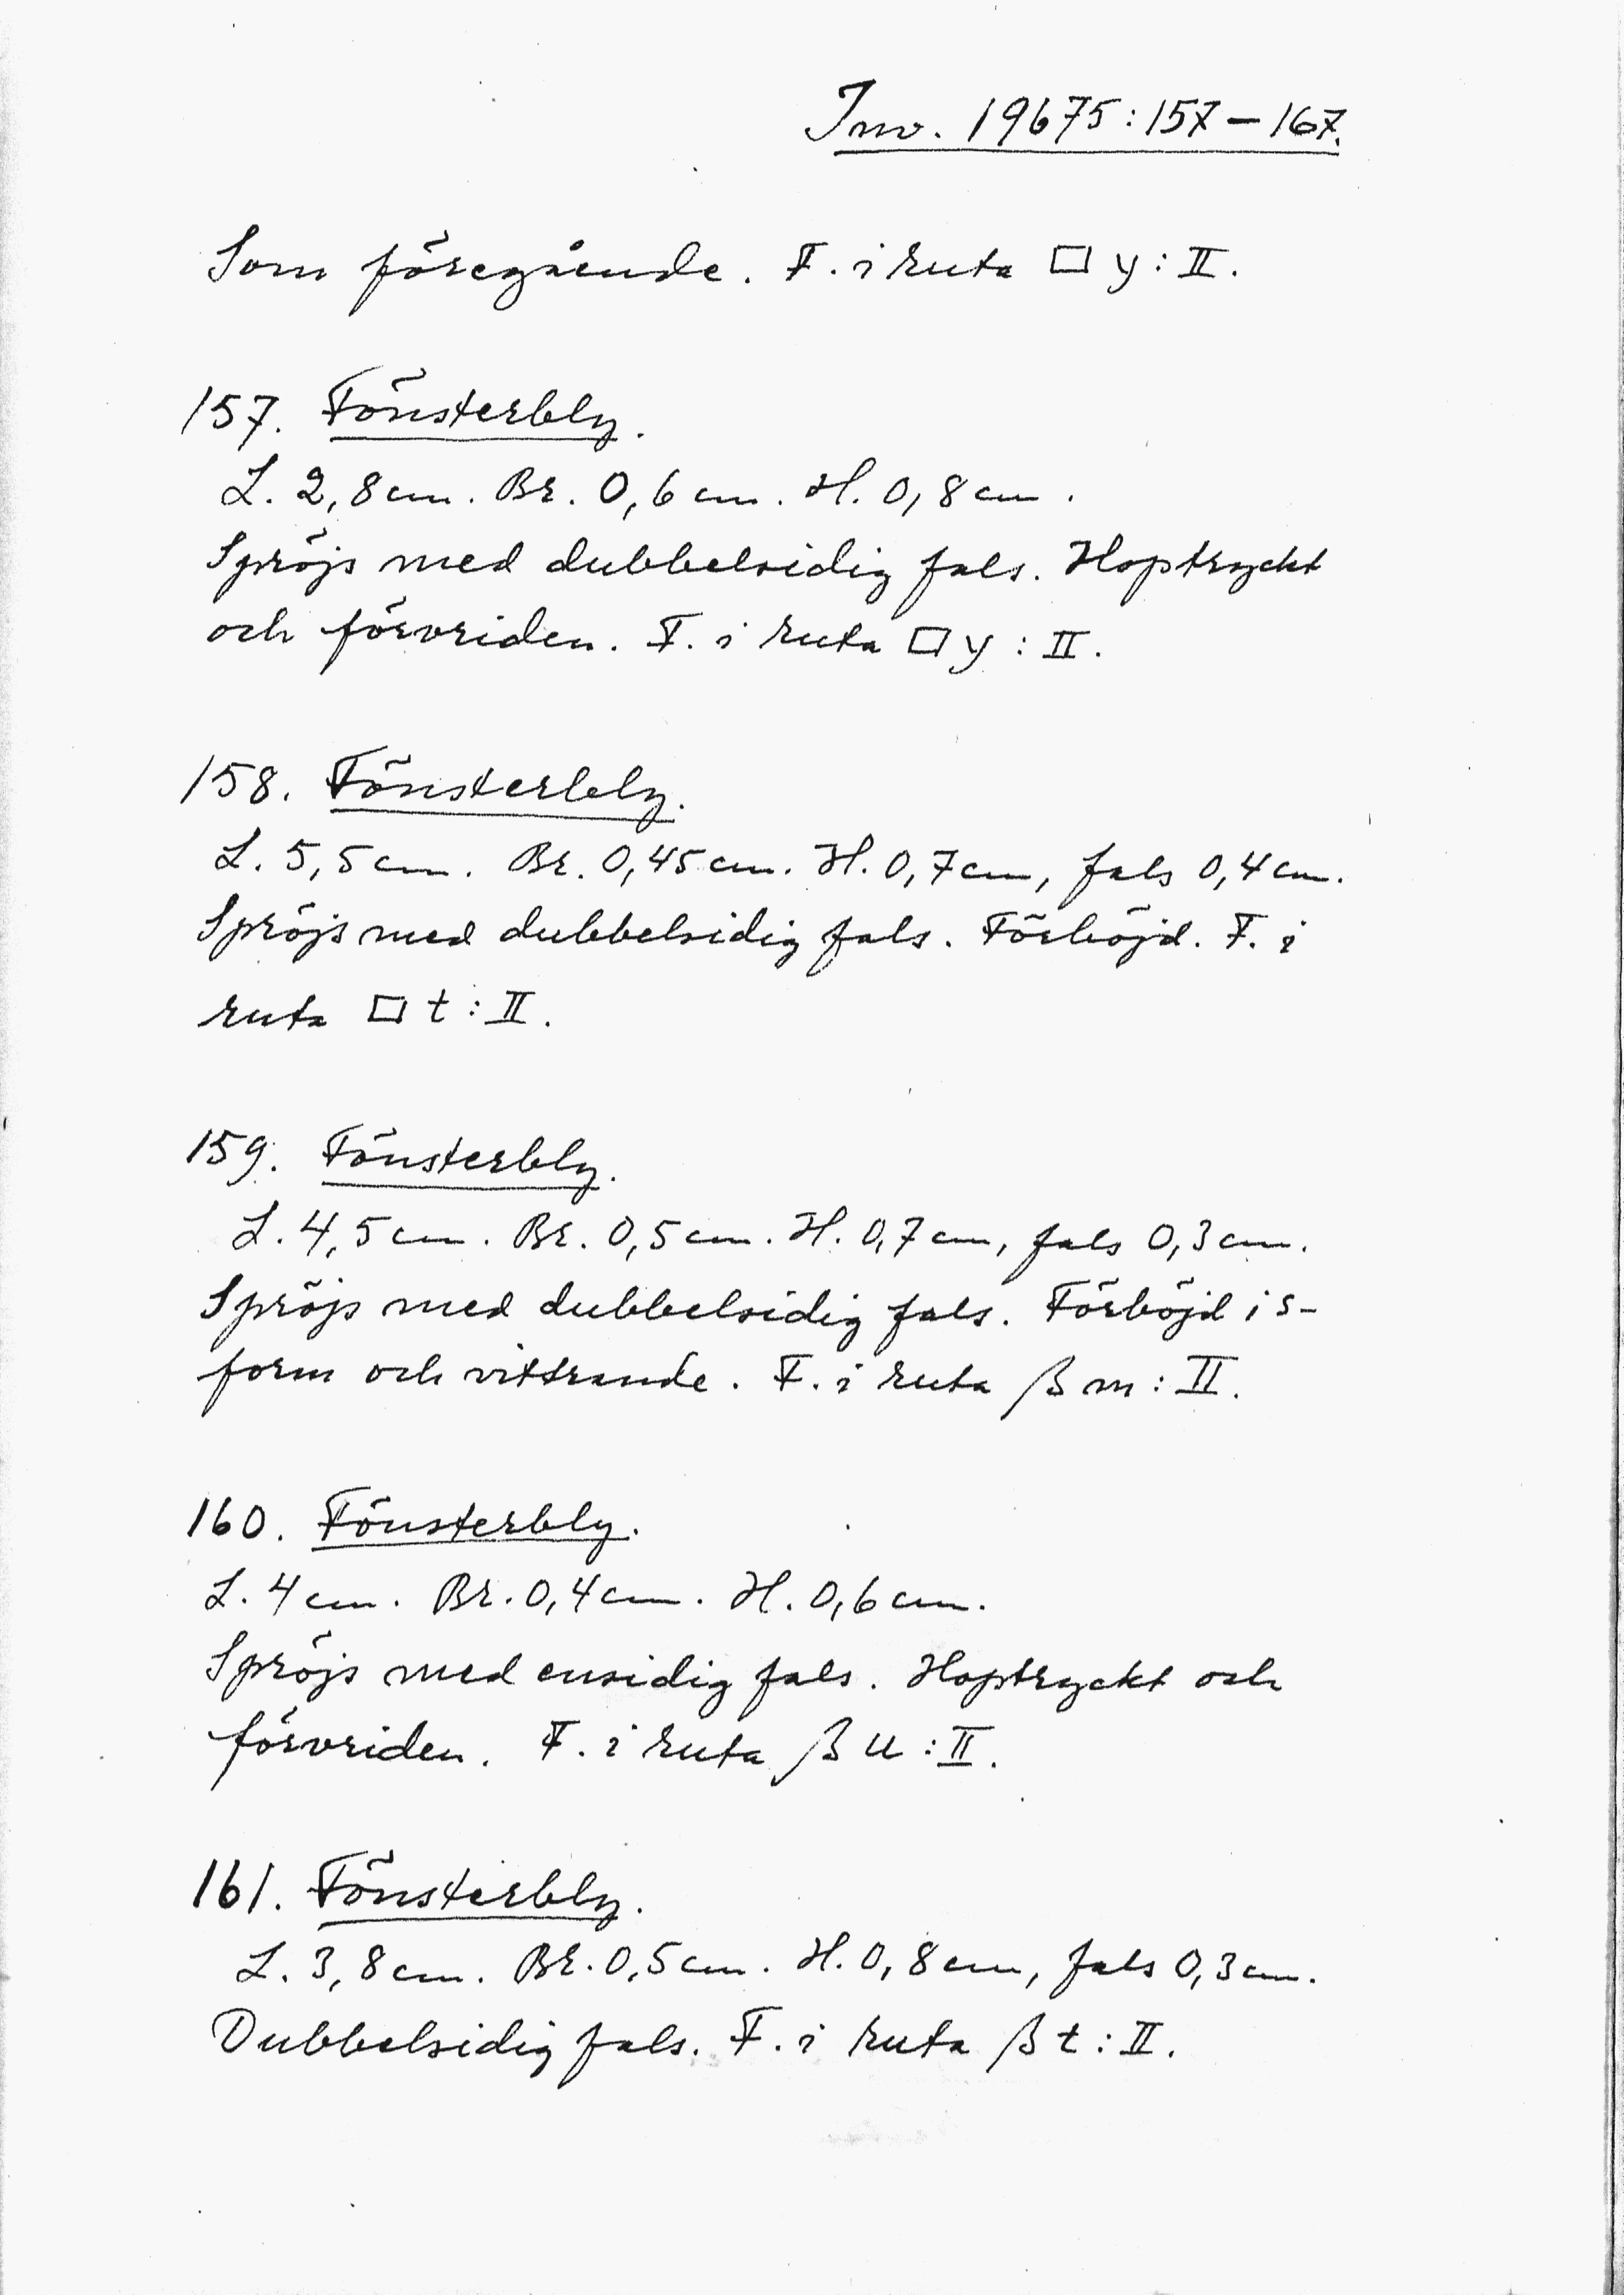 Inv. 19675:157-167.
Som föregående. F. i ruta □ y: II.
157. Fönsterbly.
L. 2,8 cm. Br. 0,6 cm. H. 0,8 cm.
Spröjs med dubbelsidig fals. Hoptryckt
och förvriden. F. i ruta □ y: II.
158. Fönsterbly.
L. 5,5 cm. Br. 0,45 cm. H. 0,7 cm, fals 0,4 cm.
Spröjs med dubbelsidig fals. Förböjd. F. i
ruta □ t: II.
159. Fönsterbly.
L. 4,5 cm. Br. 0,5 cm. H. 0,7 cm, fals 0,3 cm.
Spröjs med dubbelsidig fals. Förböjd i s-
form och vittrande. F. i ruta β m: II.
160. Fönsterbly.
L. 4 cm. Br. 0,4 cm. H. 0,6 cm.
Spröjs med ensidig fals. Hoptryckt och
förvriden. F. i ruta β u: II.
161. Fönsterbly.
L. 3,8 cm. Br. 0,5 cm. H. 0,8 cm, fals 0,3 cm.
Dubbelsidig fals. F. i ruta β t: II.